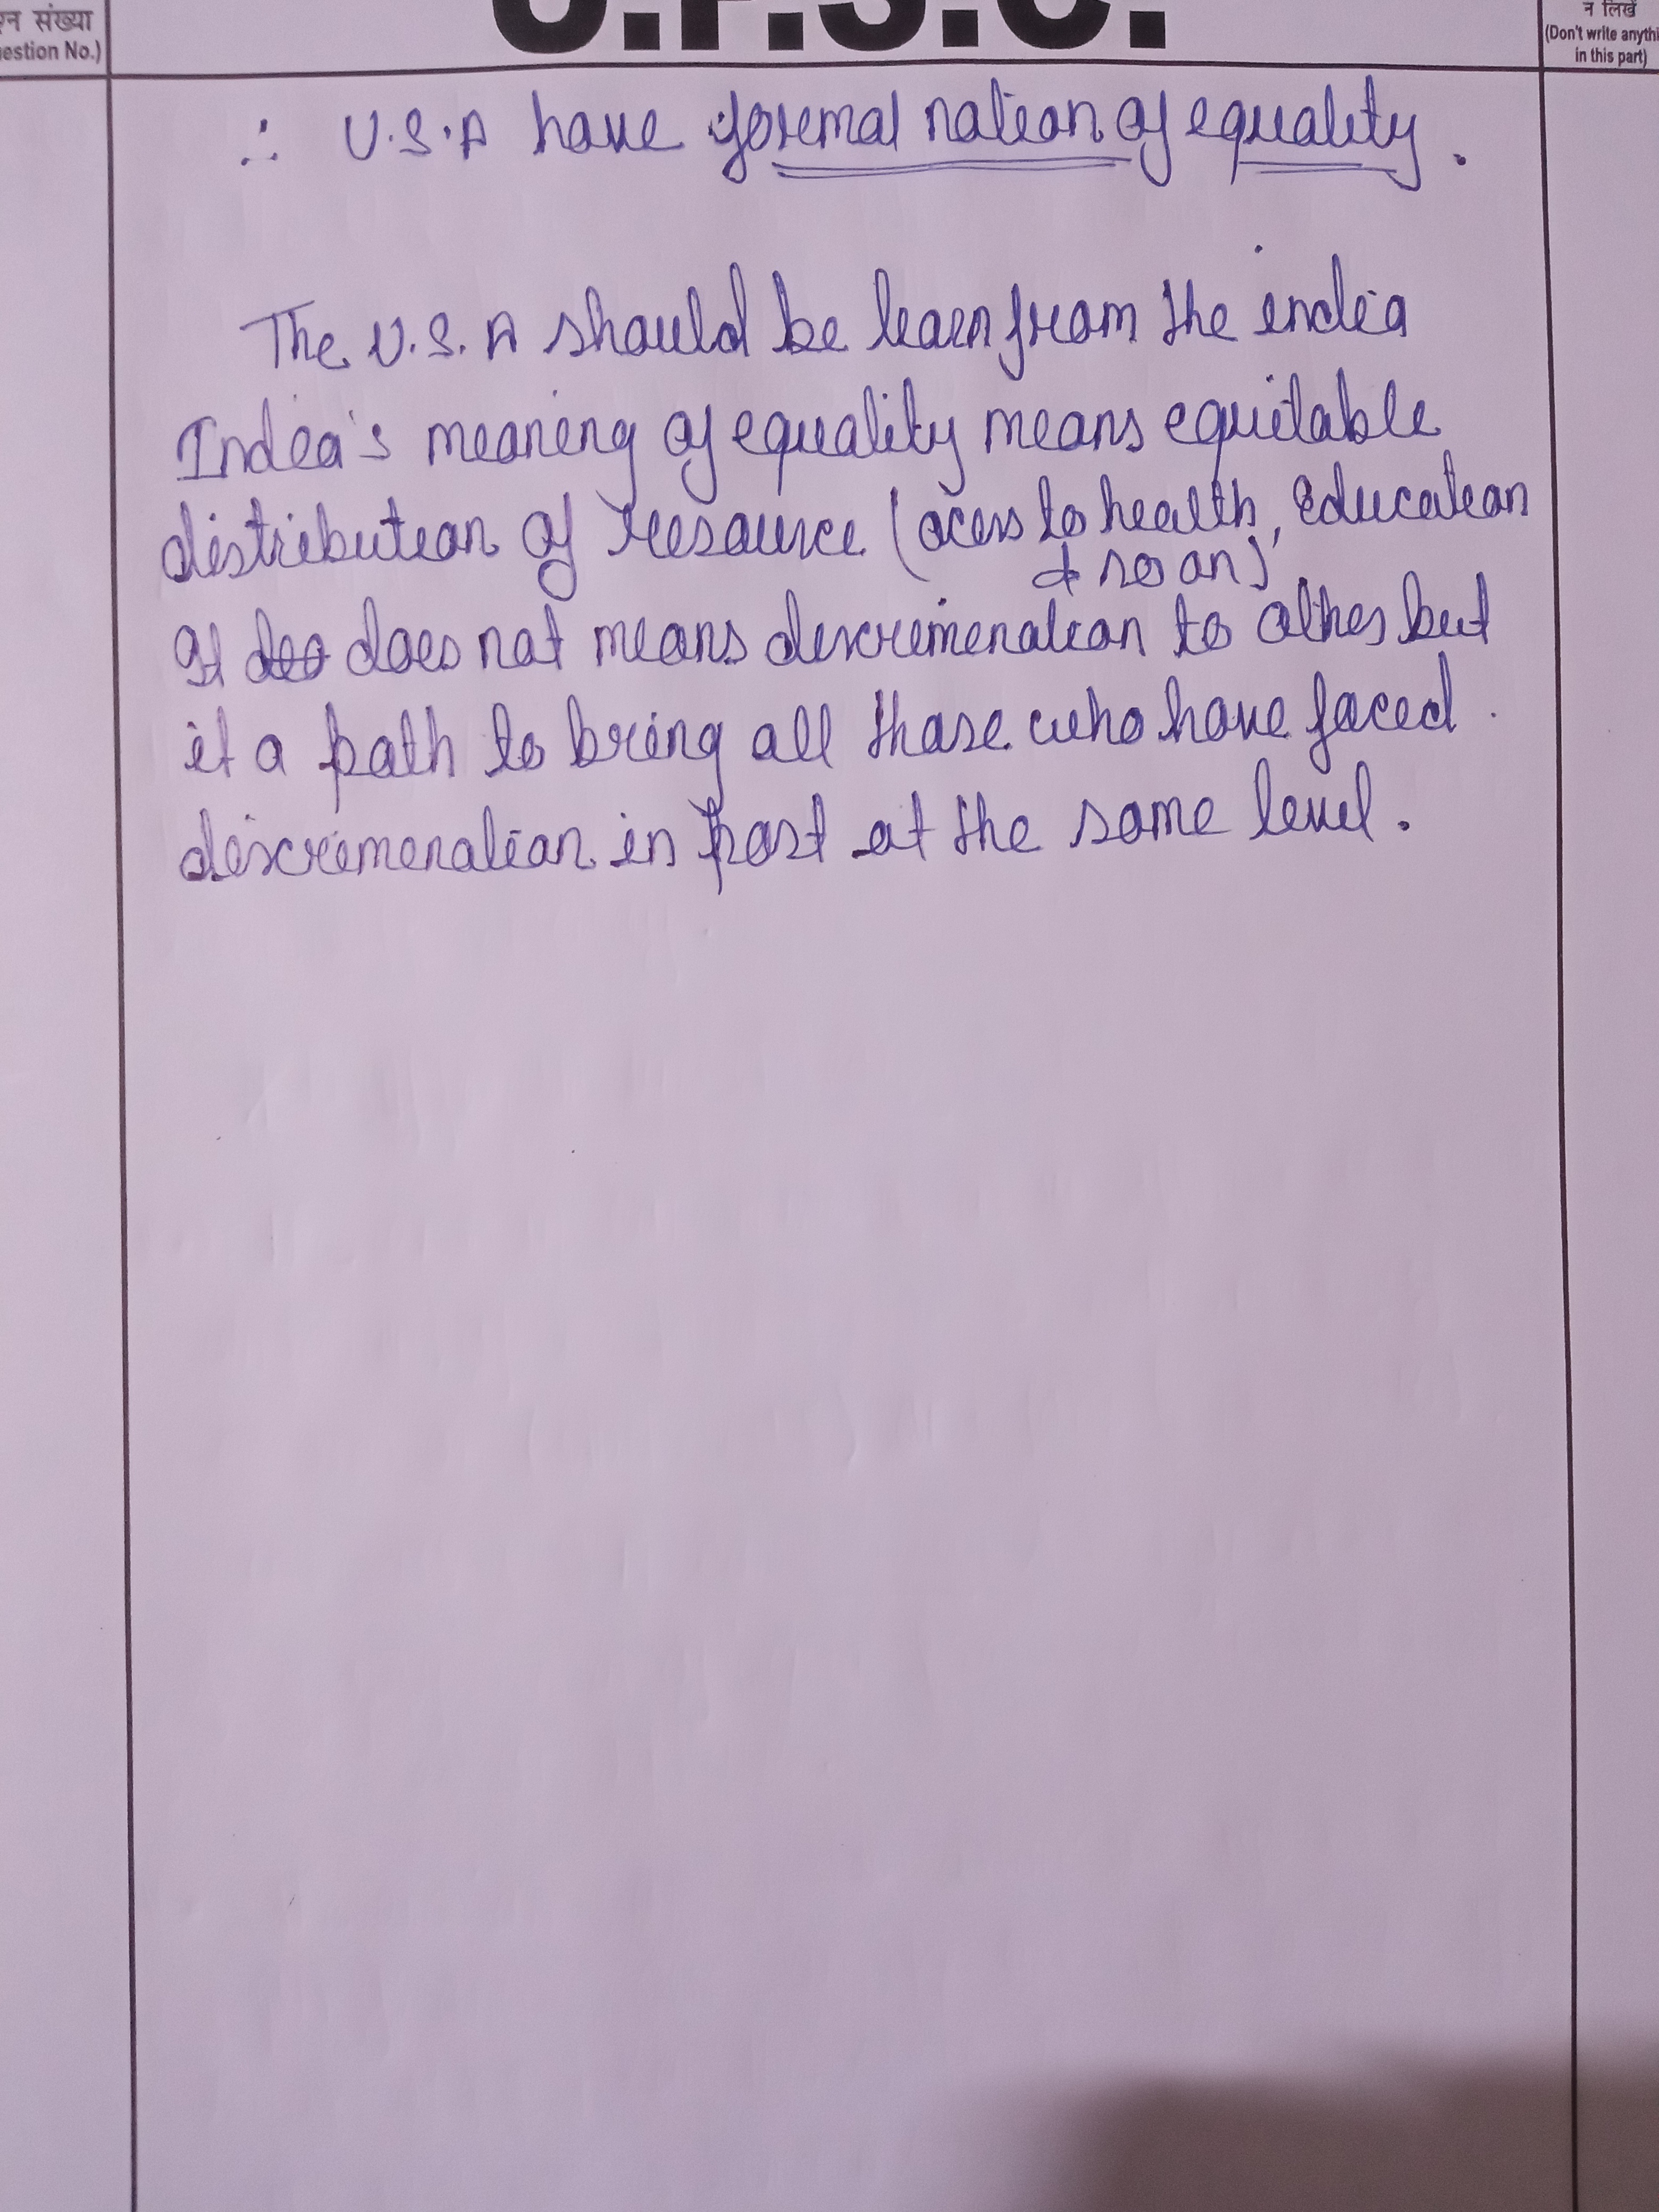 न संख्या
estion No.)
U.P.S.C.
न लिखें
(Don't write anythi
in this part)
∴ U.S.A have formal nation of equality.
The U.S.A should be learn from the india
India's meaning of equality means equitable
distribution of resource (acess to health, Education
& so on)
It does not means discrimination to othes but
it a path to bring all those who have faced
discrimination in past at the same level.